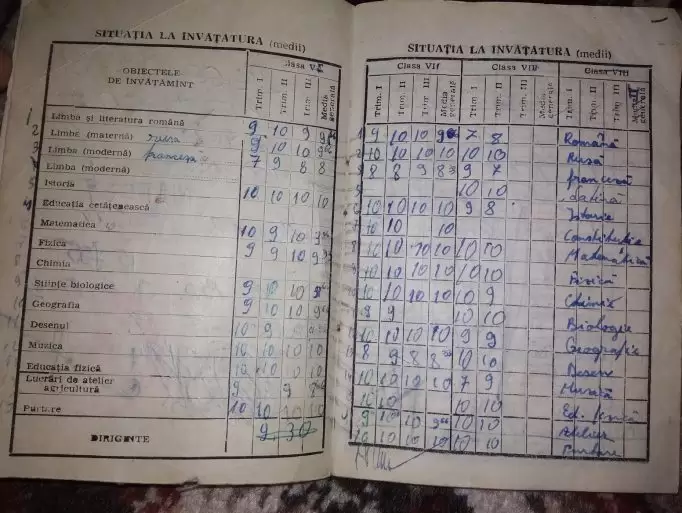 SITUAȚIA LA INVĂȚATURA (medii)
OBIECTELE DE INVĂȚĂMÎNT
Clasa V
Trim. I
Trim. II
Trim. III
Media generală
1 Limba și literatura română 9 10 9
2 Limba (maternă) rusa 9 10 10
3 Limba (modernă) franceza 7 9 8 8
Limba (modernă)
Istoria 10 10 10 10
Educația cetățenească
Matematica 10 9 10
Fizica 9 9 10
Chimia
Științe biologice 9 10 10
Geografia 9 10 10
Desenul 10 9
Muzica 10 10 10 10
Educația fizică 10 10 10 10
Lucrări de atelier agricultură 9 9
Purtare 10 10 10 10
DIRIGINTE 9 30
SITUAȚIA LA INVĂȚATURA (medii)
Clasa VII
Clasa VIII
Clasa VIII
Trim. I
Trim. II
Trim. III
Media generală
Trim. I
Trim. II
Trim. III
Media generală
Trim. I
Trim. II
Trim. III
Media generală
9 10 10 7 8 Română
10 10 10 10 10 10 Rusă
8 8 9 9 7 franceză
10 10 Latină
10 10 10 10 9 8 Istorie
10 10 10 Constituție
10 10 10 10 10 10 Matematică
10 10 10 10 10 10 Fizică
10 10 10 10 10 9 Chimie
9 9 10 10 Biologie
10 10 10 10 9 9 Geografie
8 9 8 8 10 10 Desene
10 10 10 10 7 9 Muzică
10 10 10 10 Ed. fizică
9 10 10 10 10 Atelier
10 10 10 10 10 10 Purtare